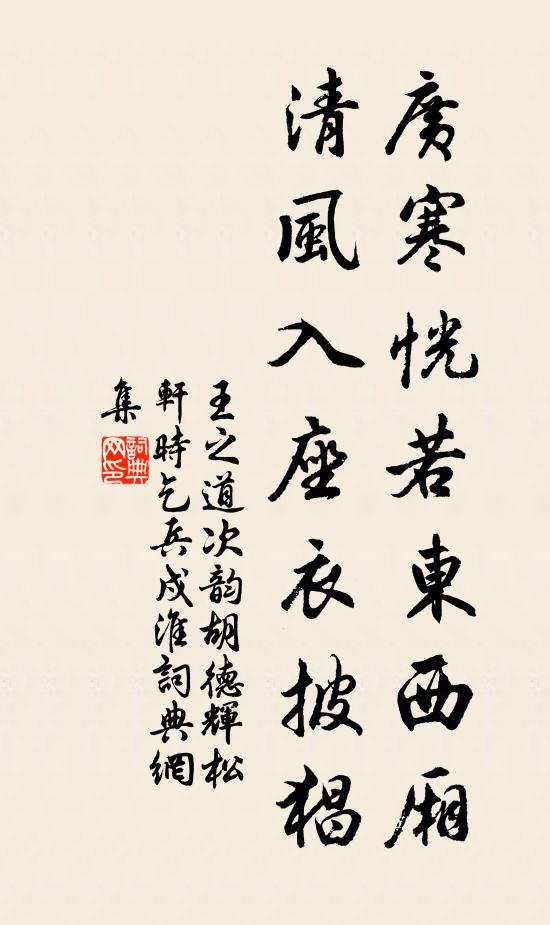 廣寒恍若東西廂
清風入座衣披猖
王之道次韵胡德輝松
軒時乞兵戍淮詞典網
集
詞典
网印